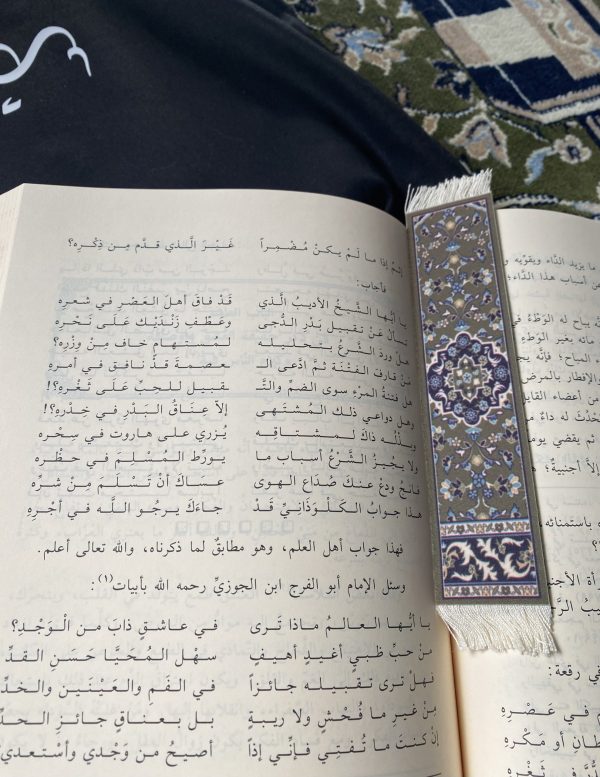 إثمٌ إذا ما لَمْ يكنْ مُضْمِراً غَيْرَ الَّذي قدَّم مِن ذِكْرِهِ؟
فأجاب:
يا أيُّها الشَّيخُ الأديبُ الَّذي قَدْ فاقَ أهلَ العَصْرِ في شعرِهِ
تسألُ عَنْ تقبيلِ بَدْرِ الدُّجى وعَطْفِ زَنْدَيْكَ عَلَى نَحْرِهِ
هلْ وردَ الشَّرعُ بتحليلِهِ لمُسْتهامٍ خافَ مِنْ وِزْرِهِ؟
مَنْ قارفَ الفِتْنَةَ ثمَّ ادَّعى الـ ـعصمةَ قدْ نافقَ في أمرِهِ
هل فتنةُ المرْءِ سوى الضمِّ والتَّـ ـقبيلِ للحِبِّ عَلَى ثَغْرِهِ؟!
وهل دواعي ذلكَ المُشْتَهى إلاَّ عِناقُ البَدْرِ في خِدْرِهِ؟!
وبذْلُه ذاكَ لمشتاقِهِ يُزري على هاروت في سِحْرِهِ
ولا يُجيزُ الشَّرْعُ أسبابَ ما يورِّطُ المُسْلِمَ في حظْرِهِ
فانجُ ودعْ عنكَ صُداعَ الهوى عساكَ أنْ تَسْلَمَ مِنْ شرِّهِ
هذا جوابُ الكَلْوَذانيِّ قَدْ جاءَكَ يرجُو اللَّهَ في أجْرِهِ
فهذا جواب أهل العلم، وهو مطابقٌ لما ذكرناه، والله تعالى أعلم.
وسئل الإمام أبو الفرج ابن الجوزيِّ رحمه الله بأبيات(١):
يا أيُّها العالمُ ماذا تَرى في عاشقٍ ذابَ من الْوَجْدِ؟
منْ حبِّ ظبيٍ أغيدٍ أهيفٍ سَهْلِ المُحَيَّا حَسَنِ القَدِّ
فهلْ ترى تقبيلَه جائزاً في الفمِ والعَيْنَينِ والخدِّ
مِنْ غيرِ ما فُحْشٍ ولا ريبةٍ بل بعناقٍ جائزِ الحدِّ
إنْ كنتَ ما تُفتي فإنِّي إذاً أصيحُ من وَجْدي وأسْتعدي
ما يزيد الدَّاء ويقوِّيه
من أسباب هذا الدَّاء؛
يباح له الوَطْءُ
مائه بغير الوطء
المباح؛ فإنَّه يجـ
والإفطار بالمرض
من أعضاء القاتل
داء
ثم يقضي يوم
إلاَّ أجنبيةٌ؛
باستمنائه
في رقعة:
في عصرِهِ
أو مَكْرِهِ